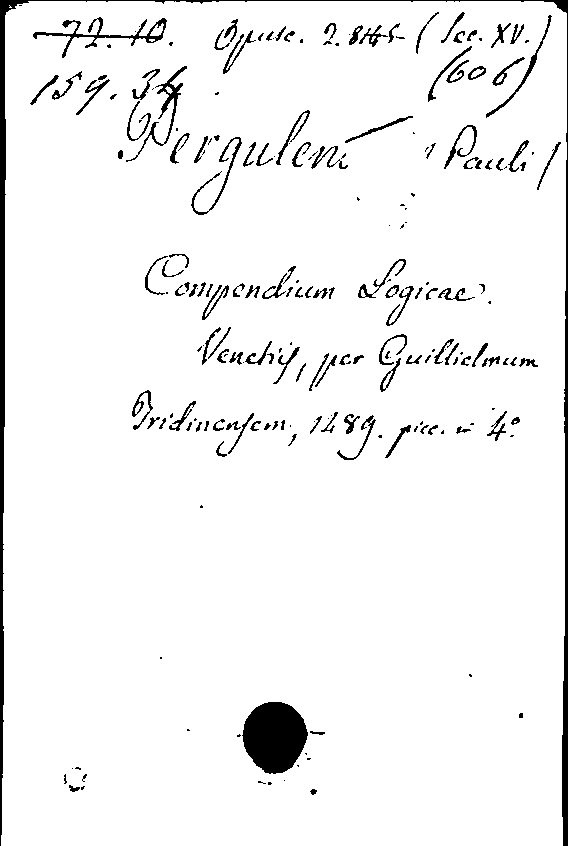 72. 10. Opusc. 2.845 (Sec. XV.)
159. 34. (606)
Pergulens (Pauli)
Compendium Logicae.
Venetijs, per Guillielmum
Tridinensem, 1489. picc. in 4°.